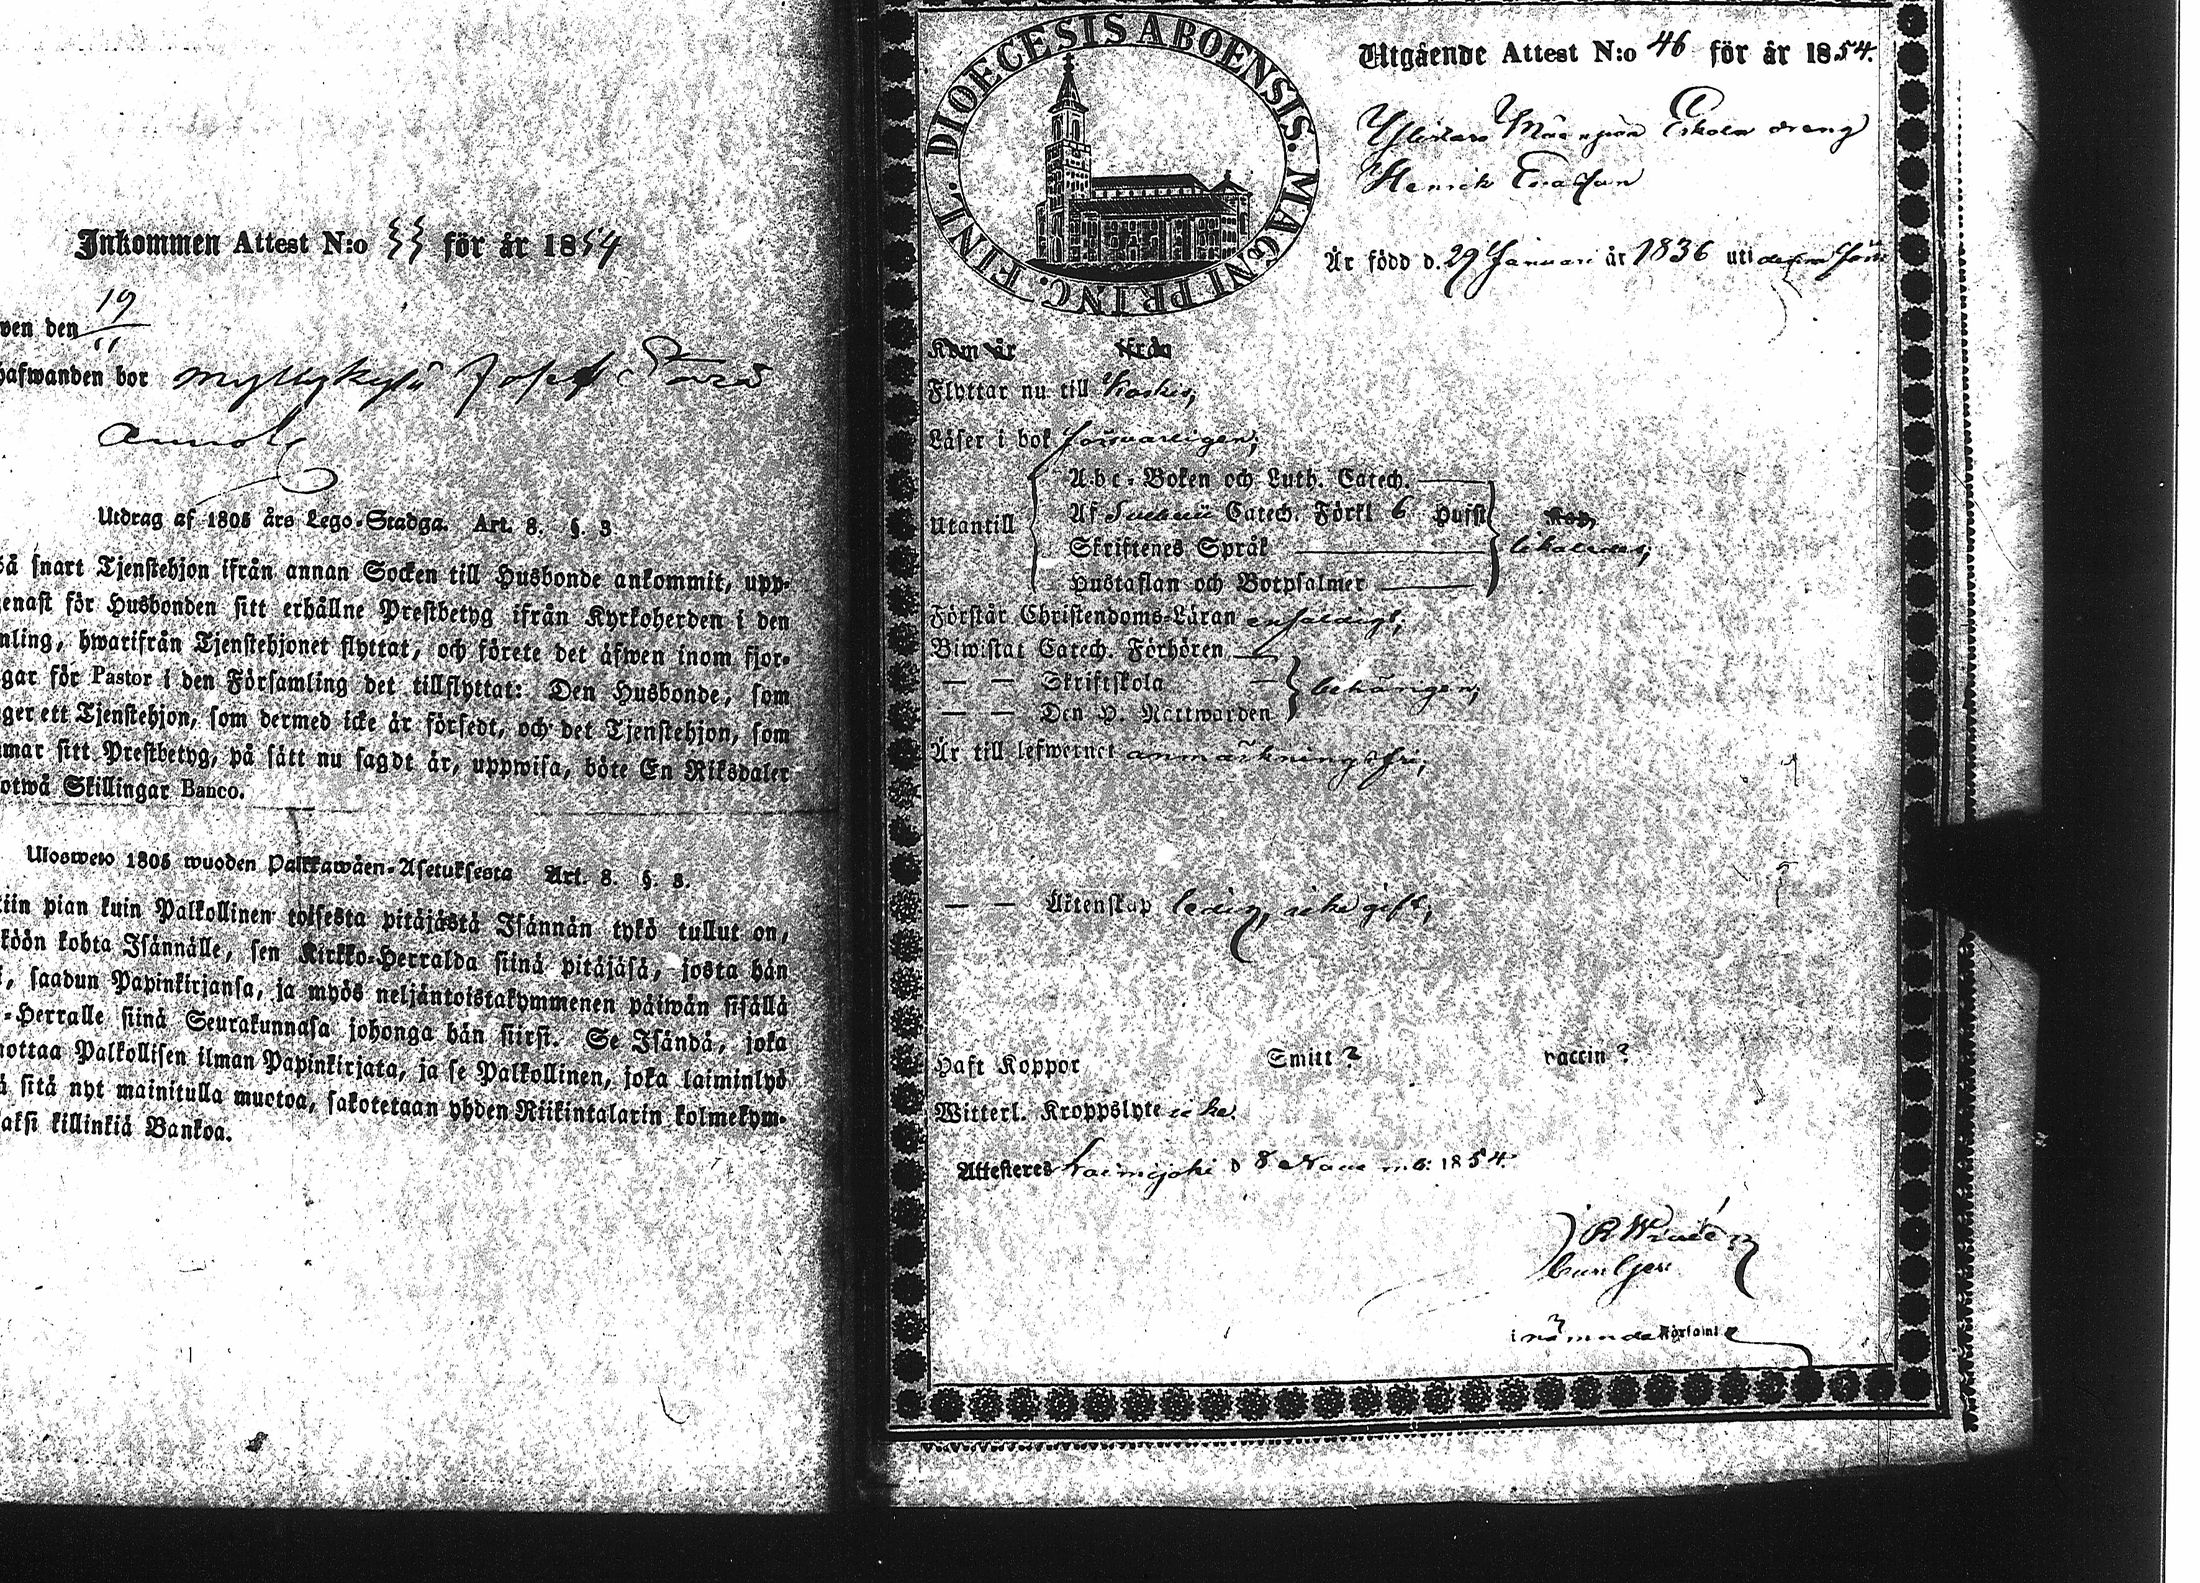 Inkommen Attest N:o 33 för år 1854
ven den 19/11
hafwanden bor Myllykylä Josef
Utdrag af 1805 års Lego-Stadga. Art. 8. §. 3.
så snart Tjenstehjon ifrån annan Socken till Husbonde ankommit, upp-
enast för Husbonden sitt erhållne Prestbetyg ifrån Kyrkoherden i den
mling, hwarifrån Tjenstehjonet flyttat, och förete det äfwen inom fjor-
gar för Pastor i den Församling det tillflyttat: Den Husbonde, som
ger ett Tjenstehjon, som dermed icke är försedt, och det Tjenstehjon, som
mar sitt Prestbetyg, på sätt nu sagdt är, uppwisa, böte En Riksdaler
otwå Skillingar Banco.
Ulosweto 1805 wuoden Palkkawäen-Asetuksesta Art. 8. §. 3.
iin pian kuin Palkollinen toisesta pitäjästä Isännän tykö tullut on,
köön kohta Isännälle, sen Kirkko-Herralda siinä pitäjäsä, josta hän
, saadun Papinkirjansa, ja myös neljäntoistakymmenen päiwän sisällä
-Herralle siinä Seurakunnasa johonga hän siirsi. Se Isändä, joka
ottaa Palkollisen ilman Papinkirjata, ja se Palkollinen, joka laiminlyö
ä sitä nyt mainitulla muotoa, sakotetaan yhden Riikintalarin kolmekym-
aksi killinkiä Bankoa.
DIOECESIS ABOENSIS. MAGNI PRINC. FINL.
Utgående Attest N:o 46 för år 1854.
Eskola dreng
Henrik
Är född d. 29 Januari år 1836 uti denna förs
Kom år från
Flyttar nu till Koskis,
Läser i bok försvarligen;
Utantill
Abc-Boken och Luth. Catech.
Af Svebelii Catech. Förkl 6 Hufst
Skriftenes Språk
Hustaflan och Botpsalmer
likaledes;
Förstår Christendoms-Läran enfaldigt;
Biwistat Catech. Förhören
— — Skriftskola
— — Den H. Nattwarden
behörigen;
Är till lefwernet anmärkningsfri;
— — Äktenskap ledig, icke gift;
Haft Koppor Smitt? vaccin?
Witterl. Kroppslyte icke.
Attesteras Karinjoki d 8 Novemb: 1854.
i nämnde Församl